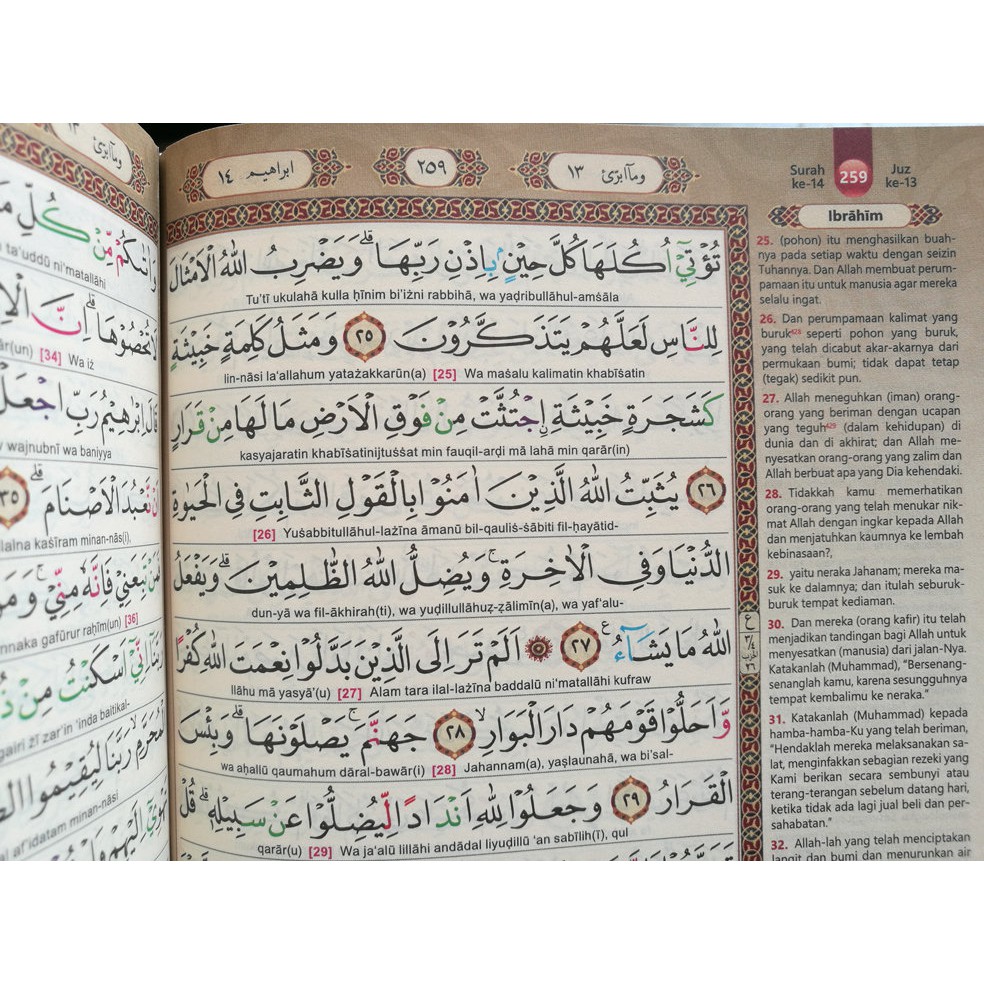 ابراهيم ١٤
٢٥٩
وماابرئ ١٣
Surah ke-14
259
Juz ke-13
Ibrāhīm
تُؤْتِيْٓ اُكُلَهَا كُلَّ حِيْنٍ ۢبِاِذْنِ رَبِّهَاۗ وَيَضْرِبُ اللّٰهُ الْاَمْثَالَ
Tu'tī ukulahā kulla ḥīnim bi'iżni rabbihā, wa yaḍribullāhul-amśāla
لِلنَّاسِ لَعَلَّهُمْ يَتَذَكَّرُوْنَ ٢٥ وَمَثَلُ كَلِمَةٍ خَبِيْثَةٍ
lin-nāsi la'allahum yatażakkarūn(a) [25] Wa maśalu kalimatin khabīśatin
كَشَجَرَةٍ خَبِيْثَةِ ِۨاجْتُثَّتْ مِنْ فَوْقِ الْاَرْضِ مَا لَهَا مِنْ قَرَارٍ
kasyajaratin khabīśatinijtuśśat min fauqil-arḍi mā lahā min qarār(in)
٢٦ يُثَبِّتُ اللّٰهُ الَّذِيْنَ اٰمَنُوْا بِالْقَوْلِ الثَّابِتِ فِى الْحَيٰوةِ
[26] Yuśabbitullāhul-lażīna āmanū bil-qauliś-śābiti fil-ḥayātid-
الدُّنْيَا وَفِى الْاٰخِرَةِۚ وَيُضِلُّ اللّٰهُ الظّٰلِمِيْنَۗ وَيَفْعَلُ
dun-yā wa fil-ākhirah(ti), wa yuḍillullāhuẓ-ẓālimīn(a), wa yaf'alu-
اللّٰهُ مَا يَشَاۤءُ ٢٧ ع ۞ اَلَمْ تَرَ اِلَى الَّذِيْنَ بَدَّلُوْا نِعْمَتَ اللّٰهِ كُفْرًا
llāhu mā yasyā'(u) [27] Alam tara ilal-lażīna baddalū ni'matallāhi kufraw
وَّاَحَلُّوْا قَوْمَهُمْ دَارَ الْبَوَارِۙ ٢٨ جَهَنَّمَۚ يَصْلَوْنَهَاۗ وَبِئْسَ
wa aḥallū qaumahum dāral-bawār(i) [28] Jahannam(a), yaṣlaunahā, wa bi'sal-
الْقَرَارُ ٢٩ وَجَعَلُوْا لِلّٰهِ اَنْدَادًا لِّيُضِلُّوْا عَنْ سَبِيْلِهٖۗ قُلْ
qarār(u) [29] Wa ja'alū lillāhi andādal liyuḍillū 'an sabīlih(ī), qul
25. (pohon) itu menghasilkan buah-
nya pada setiap waktu dengan seizin
Tuhannya. Dan Allah membuat perum-
pamaan itu untuk manusia agar mereka
selalu ingat.
26. Dan perumpamaan kalimat yang
buruk428 seperti pohon yang buruk,
yang telah dicabut akar-akarnya dari
permukaan bumi; tidak dapat tetap
(tegak) sedikit pun.
27. Allah meneguhkan (iman) orang-
orang yang beriman dengan ucapan
yang teguh429 (dalam kehidupan) di
dunia dan di akhirat; dan Allah me-
nyesatkan orang-orang yang zalim dan
Allah berbuat apa yang Dia kehendaki.
28. Tidakkah kamu memerhatikan
orang-orang yang telah menukar nik-
mat Allah dengan ingkar kepada Allah
dan menjatuhkan kaumnya ke lembah
kebinasaan?,
29. yaitu neraka Jahanam; mereka ma-
suk ke dalamnya; dan itulah seburuk-
buruk tempat kediaman.
30. Dan mereka (orang kafir) itu telah
menjadikan tandingan bagi Allah untuk
menyesatkan (manusia) dari jalan-Nya.
Katakanlah (Muhammad), "Bersenang-
senanglah kamu, karena sesungguhnya
tempat kembalimu ke neraka."
31. Katakanlah (Muhammad) kepada
hamba-hamba-Ku yang telah beriman,
"Hendaklah mereka melaksanakan sa-
lat, menginfakkan sebagian rezeki yang
Kami berikan secara sembunyi atau
terang-terangan sebelum datang hari,
ketika tidak ada lagi jual beli dan per-
sahabatan."
32. Allah-lah yang telah menciptakan
langit dan bumi dan menurunkan air
وماابرئ ١٣
كُلِّ
وَاٰتٰىكُمْ مِّنْ
ta'uddū ni'matallāhi
لَا تُحْصُوْهَاۗ اِنَّ
[34] Wa iż
قَالَ اِبْرٰهِيْمُ رَبِّ اجْعَلْ
wajnubnī wa baniyya
نَّعْبُدَ الْاَصْنَامَۗ ٣٥
kaśīram minan-nās(i),
فَمَنْ تَبِعَنِيْ فَاِنَّهٗ مِنِّيْۚ
gafūrur raḥīm(un) [36]
رَبَّنَآ اِنِّيْٓ اَسْكَنْتُ مِنْ
gairi żī zar'in 'inda baitikal-
رَبَّنَا لِيُقِيْمُوا
af'idatam minan-nāsi